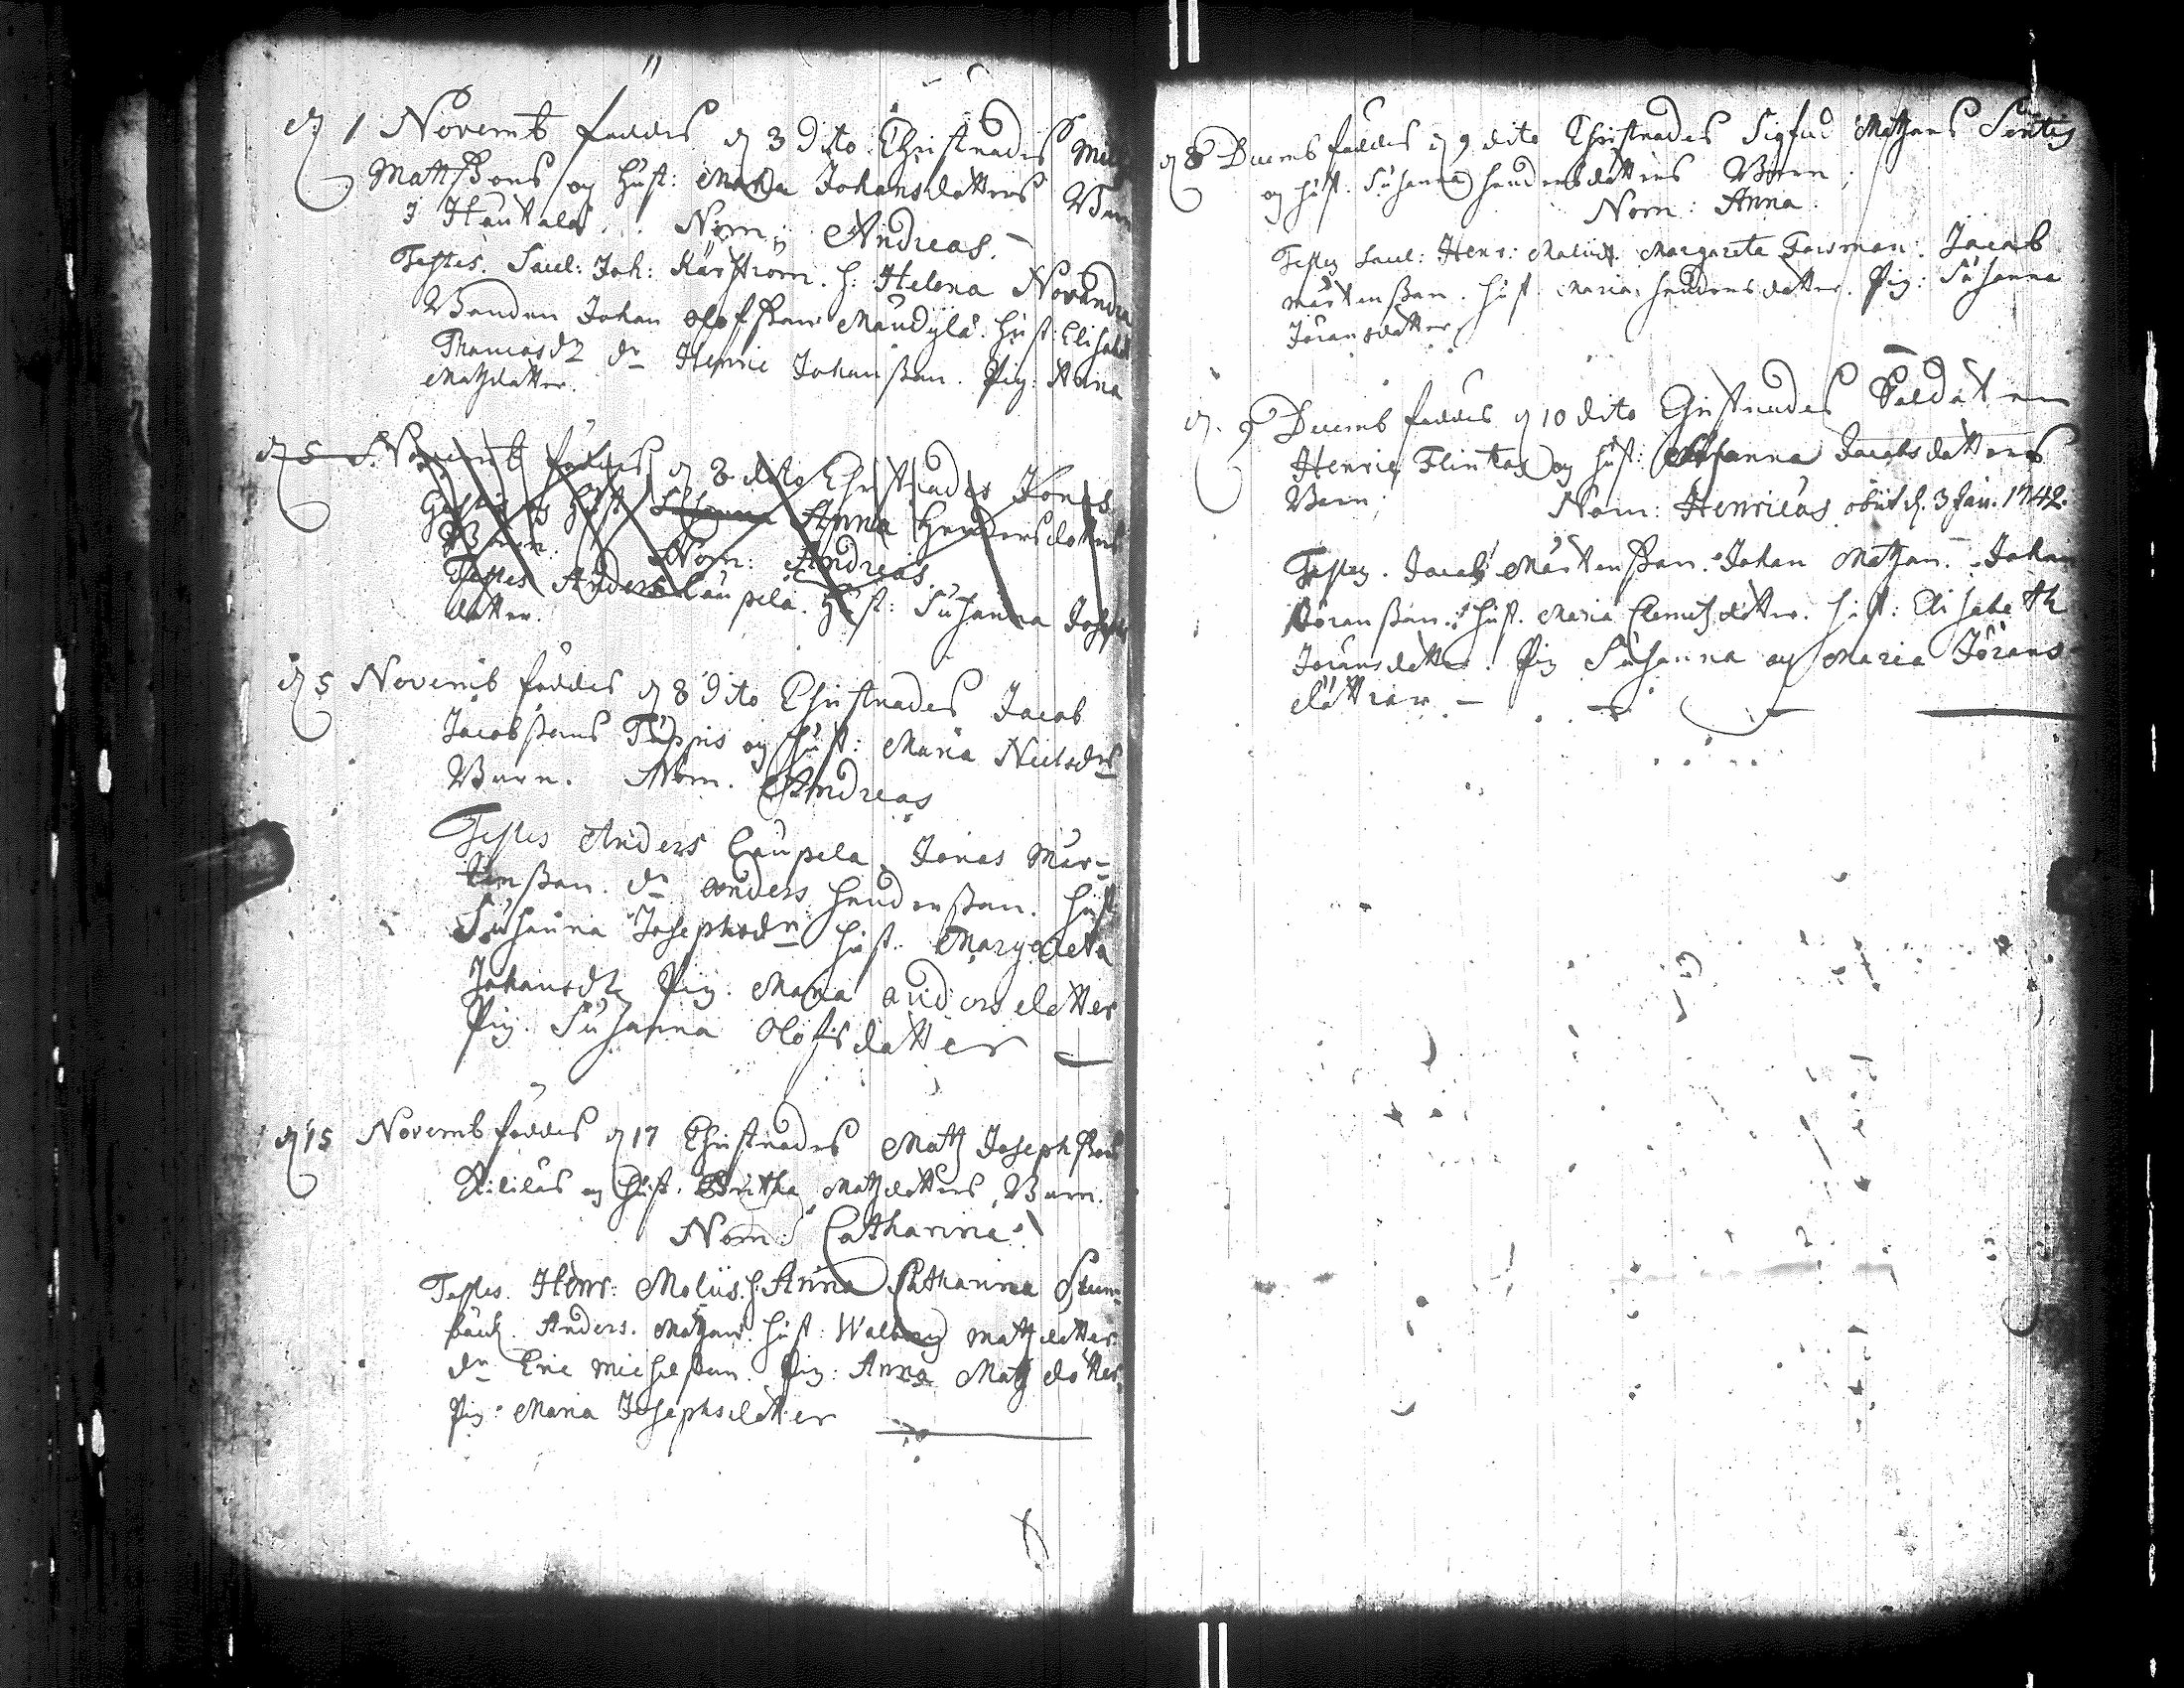 d. 1 Novemb föddes d 3 dito Christnades Mich
Mattssons og hust: Maria Johansdotters Barn
I Hautala. Nom: Andreas.
Testes. Saul: Joh: Kårström. h: Helena Novandra
Bonden Johan Olofsson Mandylä. Hust: Elisabet
Thomasdr dr Henric Johansson. Pig: Anna
Matzdotter.
d 5 Novemb föddes d 8 dito Christnades Jonas
og Hust: Anna Hendersdotters
Barn. Nom: Andreas.
Testes Anders Caupela. Hust: Susanna Josephs
dotter.
d 5 Novemb föddes d 8 dito Christnades Jacob
Jacobssons Tuppis og Hust: Maria Nielsdrs
Barn. Nom. Andreas
Testes Anders Caupela. Jonas Mår-
tensson. dr Anders Hendersson. Hust
Susanna Josephsdr hust. Margreta
Johansdr Pig. Maria Andersdotter
Pig. Susanna Olofsdotter
d 15 Novemb föddes d 17 Christnades Matz Josephssons
og Hust. Britha Matzdotters Barn.
Nom: Catharina.
Testes. Henr: Molijs. h: Anna Catharina Stem-
bäck. Anders. Matzson. Hust: Walborg Matzdotter
dr Eric Michelsson. Pig: Anna Matzdotter,
Pig: Maria Josephsdotter
d 8 Decemb föddes d 9 dito Christnades Sigfrid Matzons
og hust. Susanna Hendersdotters Barn;
Nom: Anna.
Testes Saul: Henr: Margareta Forsman. Jacob
Mårtensson. hust. Maria Hendersdotter. Pig: Susanna
Jöransdotter
d. 9 Decemb föddes d 10 dito Christnades Soldaten
Henric Flinkas og hust: Susanna Jacobsdotters
Barn; Nom: Henricus. obiit d. 3 Jan. 1742.
Testes. Jacob Mårtensson. Johan Matzson. Johan
Jöransson. hust. Maria Clemetzdotter. hust: Elisabeth
Jöransdotter. Pig Susanna og Maria Jörans-
döttrar